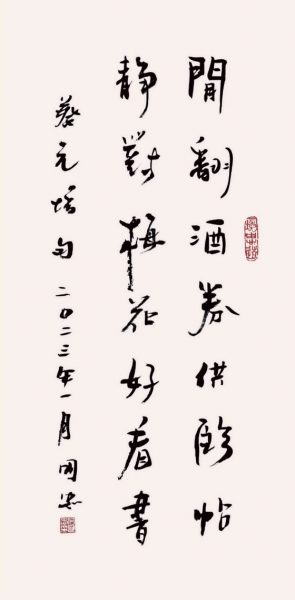 閒翻酒券供臨帖
静對梅花好看書
蔡元培句 二〇二三年一月 國